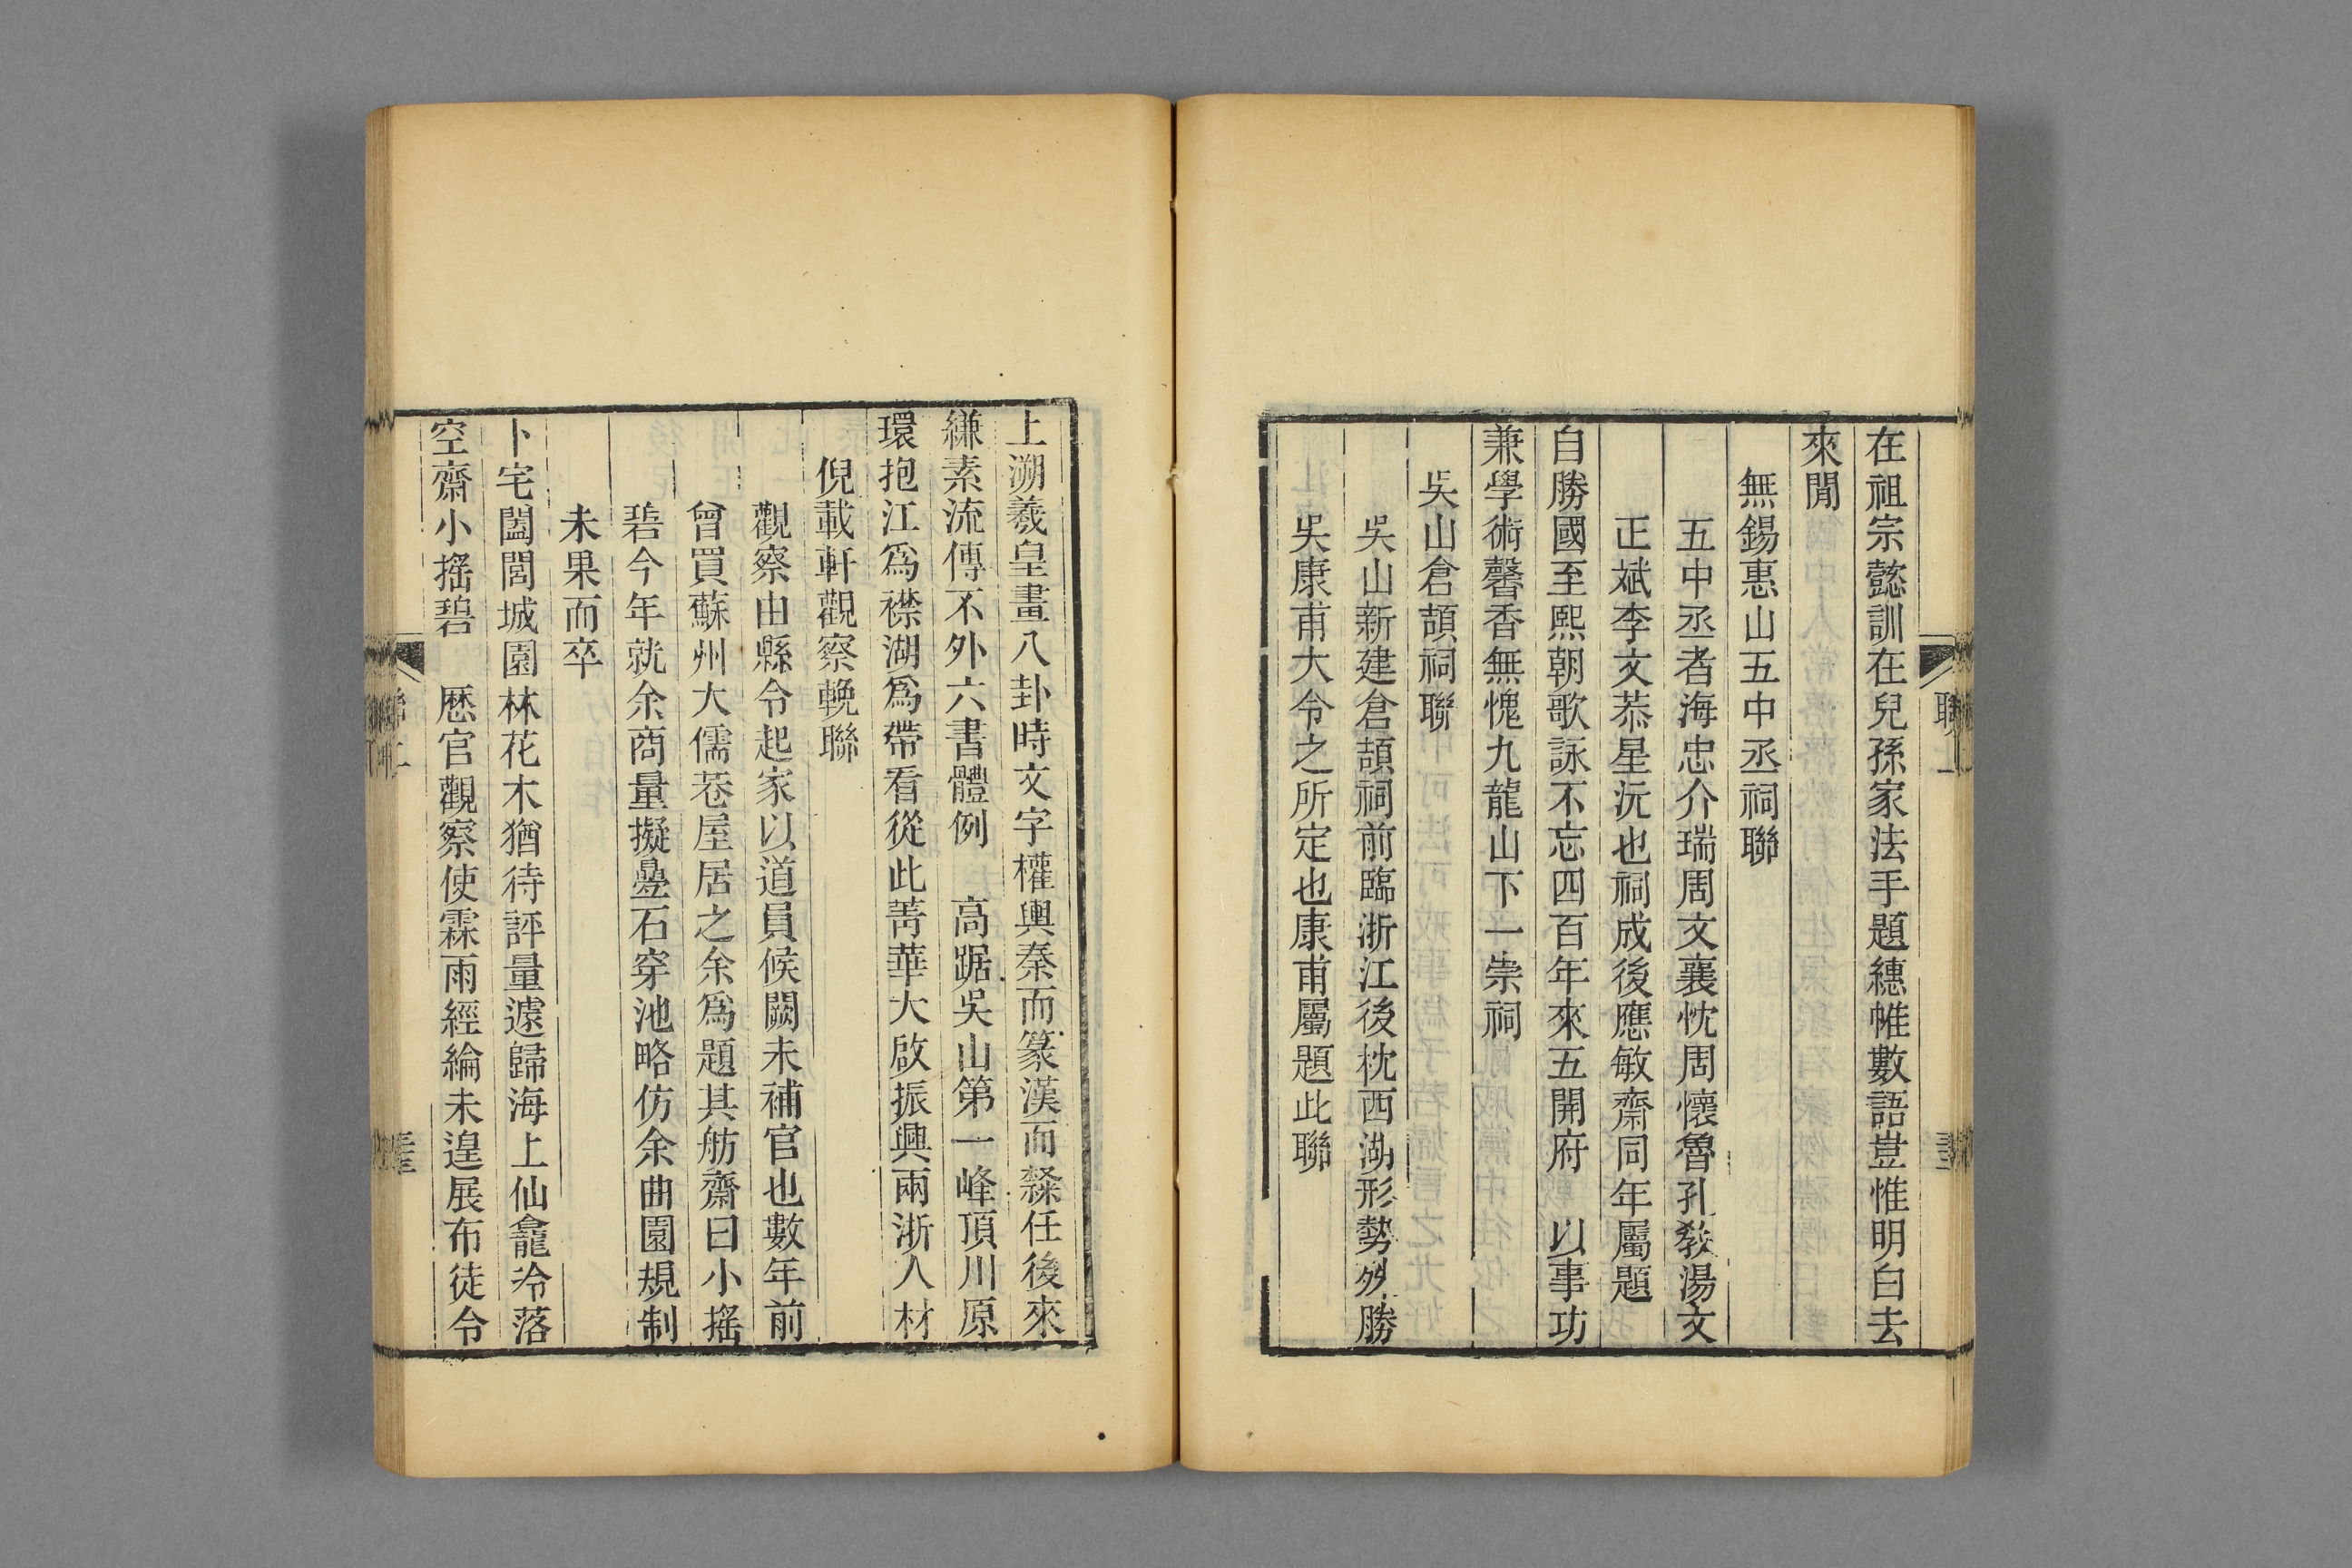 在祖宗懿訓在兒孫家法手題繐帷數語豈惟明白去
來閒
無錫惠山五中丞祠聯
五中丞者海忠介瑞周文襄忱周懷魯孔教湯文
正斌李文恭星沅也祠成後應敏齋同年屬題
自勝國至熙朝歌詠不忘四百年來五開府　以事功
兼學術馨香無愧九龍山下一崇祠
吳山倉頡祠聯
吳山新建倉頡祠前臨浙江後枕西湖形勢夗勝
吳康甫大令之所定也康甫屬題此聯
上溯羲皇畫八卦時文字權輿秦而篆漢而隸任後來
縑素流傳不外六書體例　高踞吳山第一峰頂川原
環抱江爲襟湖爲帶看從此菁華大啟振興兩浙人材
倪載軒觀察輓聯
觀察由縣令起家以道員候闕未補官也數年前
曾買蘇州大儒巷屋居之余爲題其舫齋曰小搖
碧今年就余商量擬疊石穿池略仿余曲園規制
未果而卒
卜宅闔閭城園林花木猶待評量遽歸海上仙龕冷落
空齋小搖碧　厯官觀察使霖雨經綸未遑展布徒令